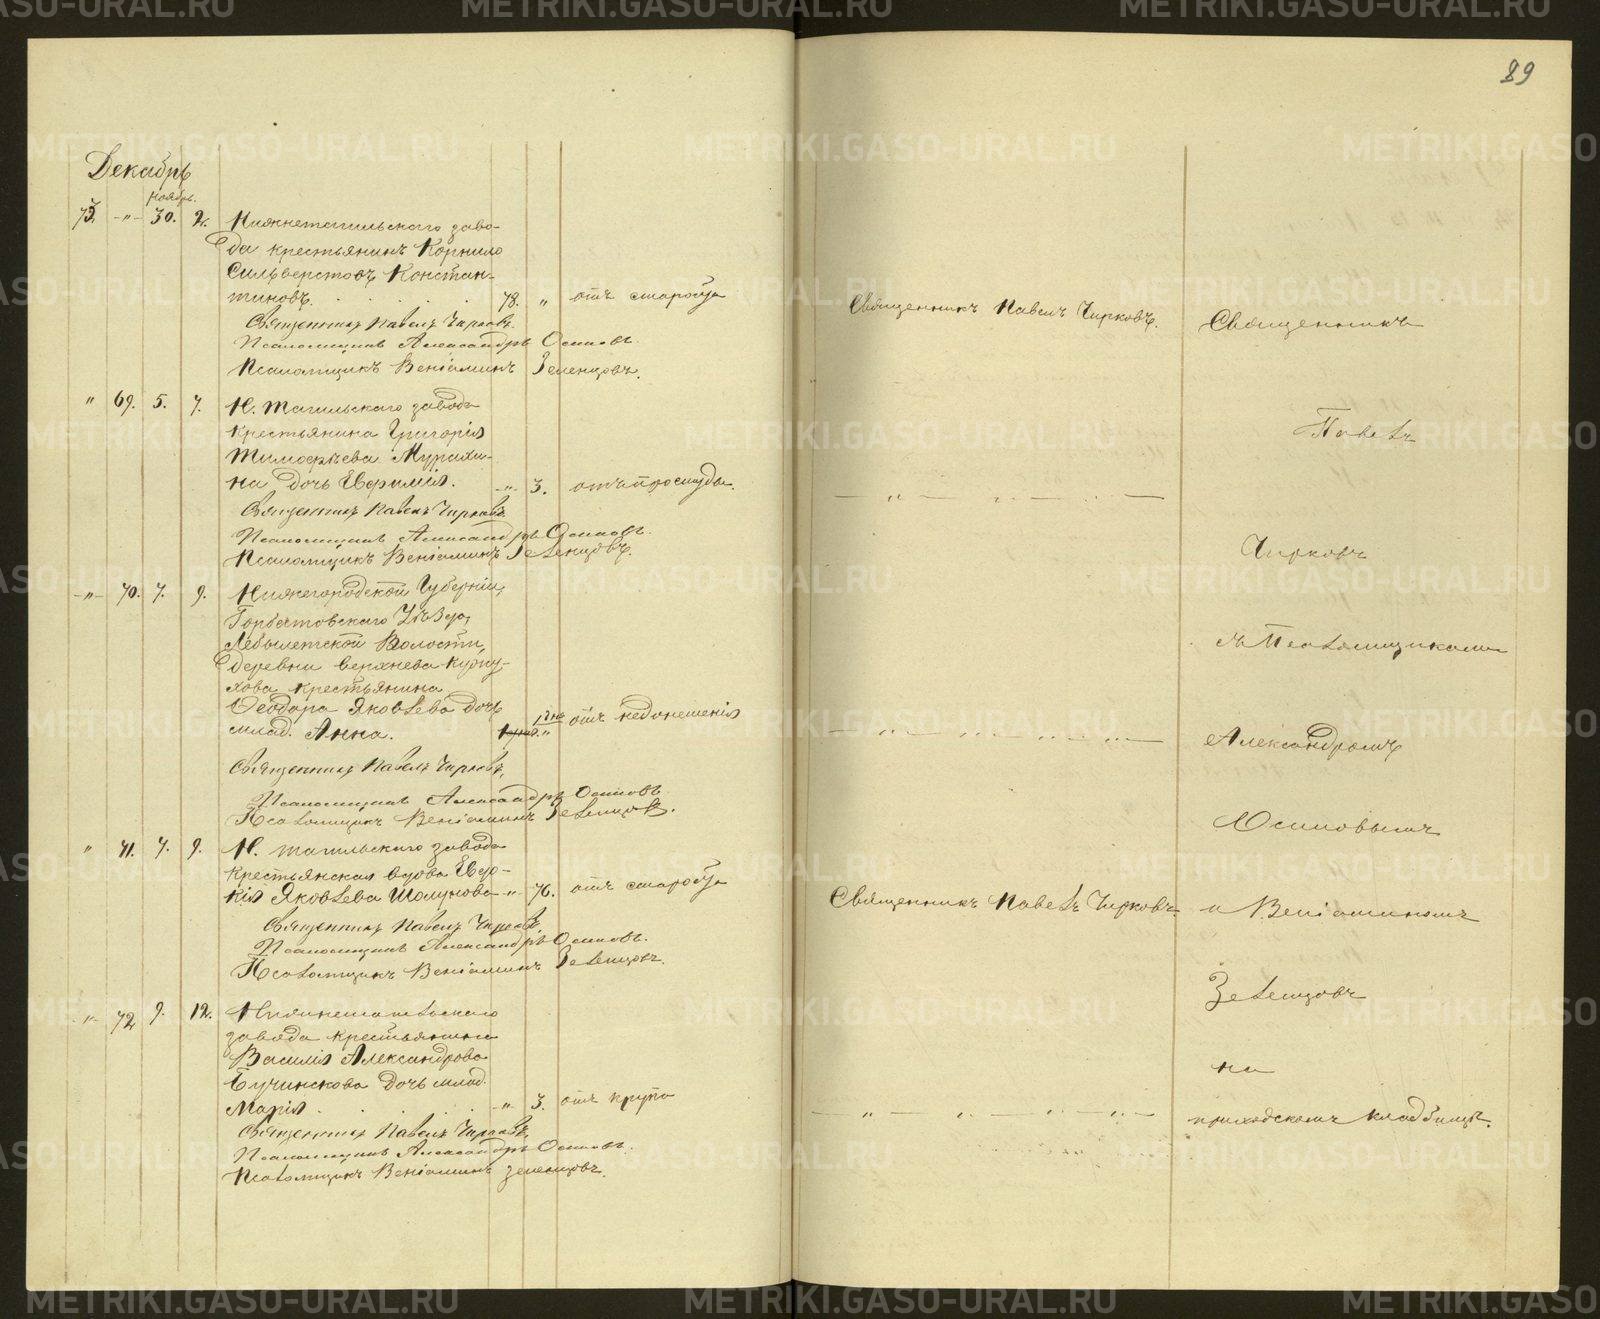 89
Декабрь
ноябрь.
73. -"- 30. 2. Нижнетагильскаго заво-
да крестьянинъ Корнило
Сильверстовъ Констан-
тиновъ. 78. " отъ старости
Священникъ Павелъ Чирковъ.
Псаломщикъ Александръ Осиповъ.
Псаломщикъ Веніаминъ Зеленцовъ.
" 69. 5. 7. Н. Тагильскаго завода
крестьянина Григорія
Тимофѣева Мурахи-
на дочь Евфимія. -"- 3. отъ простуды.
Священникъ Павелъ Чирковъ
Псаломщикъ Александръ Осиповъ.
Псаломщикъ Веніаминъ Зеленцовъ.
-"- 70. 7. 9. Нижегородской Губерніи,
Горбатовскаго Уѣзда,
волости,
деревни верхнева
крестьянина
Ѳеодора Яковлева дочь
млад. Анна. 1 дня отъ недонешенія
Священникъ Павелъ Чирковъ,
Псаломщикъ Александръ Осиповъ.
Псаломщикъ Веніаминъ Зеленцовъ.
" 71. 7. 9. Н. тагильскаго завода
крестьянская вдова Евдо-
кія Яковлева Шолунова -"- 76. отъ старости
Священникъ Павелъ Чирковъ.
Псаломщикъ Александръ Осиповъ.
Псаломщикъ Веніаминъ Зеленцовъ.
-"- 72 9. 12. Нижнетагильскаго
завода крестьянина
Василія Александрова
Бучинскова дочь млад.
Марія. -"- 3. отъ крупа
Священникъ Павелъ Чирковъ,
Псаломщикъ Александръ Осиповъ.
Псаломщикъ Веніаминъ Зеленцовъ.
Священникъ Павелъ Чирковъ.
Священникъ Павелъ Чирковъ.
Священникъ
Павелъ
Чирковъ
съ Псаломщиками
Александромъ
Осиповымъ
и Веніаминомъ
Зеленцовъ
на
приходскомъ кладбищѣ.
METRIKI.GASO-URAL.RU